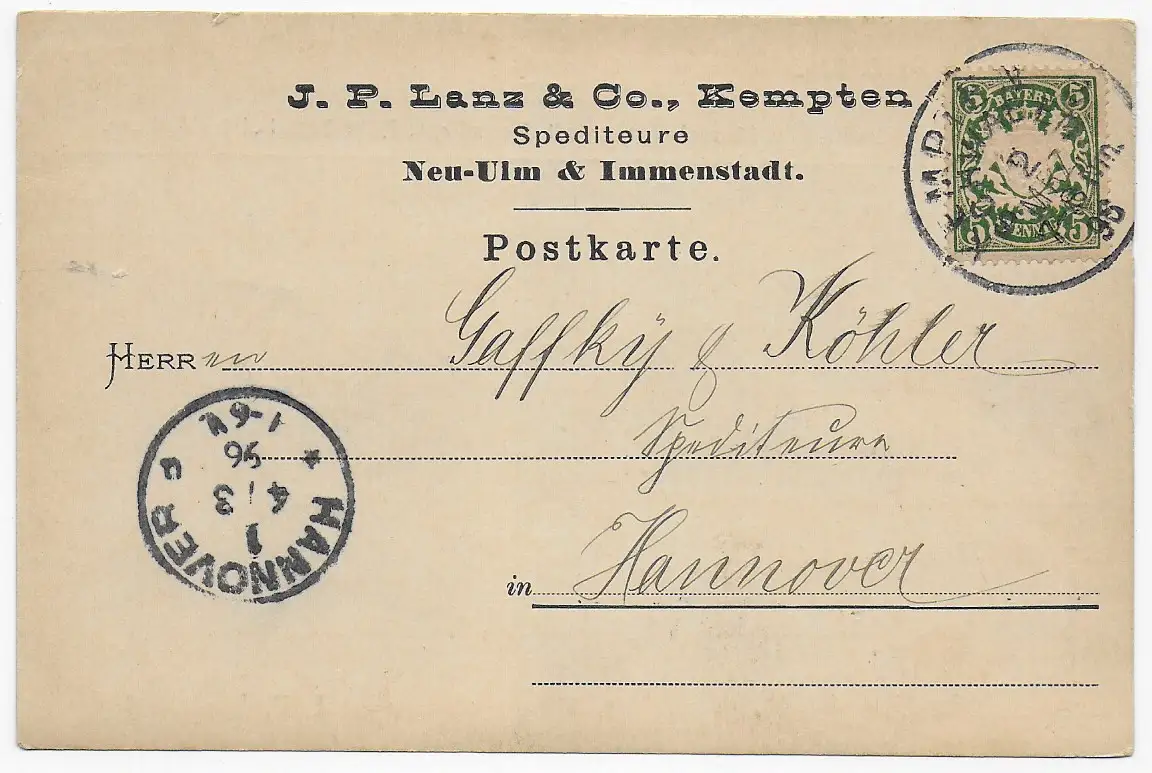 J. P. Lanz & Co., Kempten
Spediteure
Neu-Ulm & Immenstadt.
Postkarte.
BAYERN
5 5
5 5
96
HERRen Gaffky & Köhler
Spediteure
in Hannover
HANNOVER
1
4 3
96
1-6N